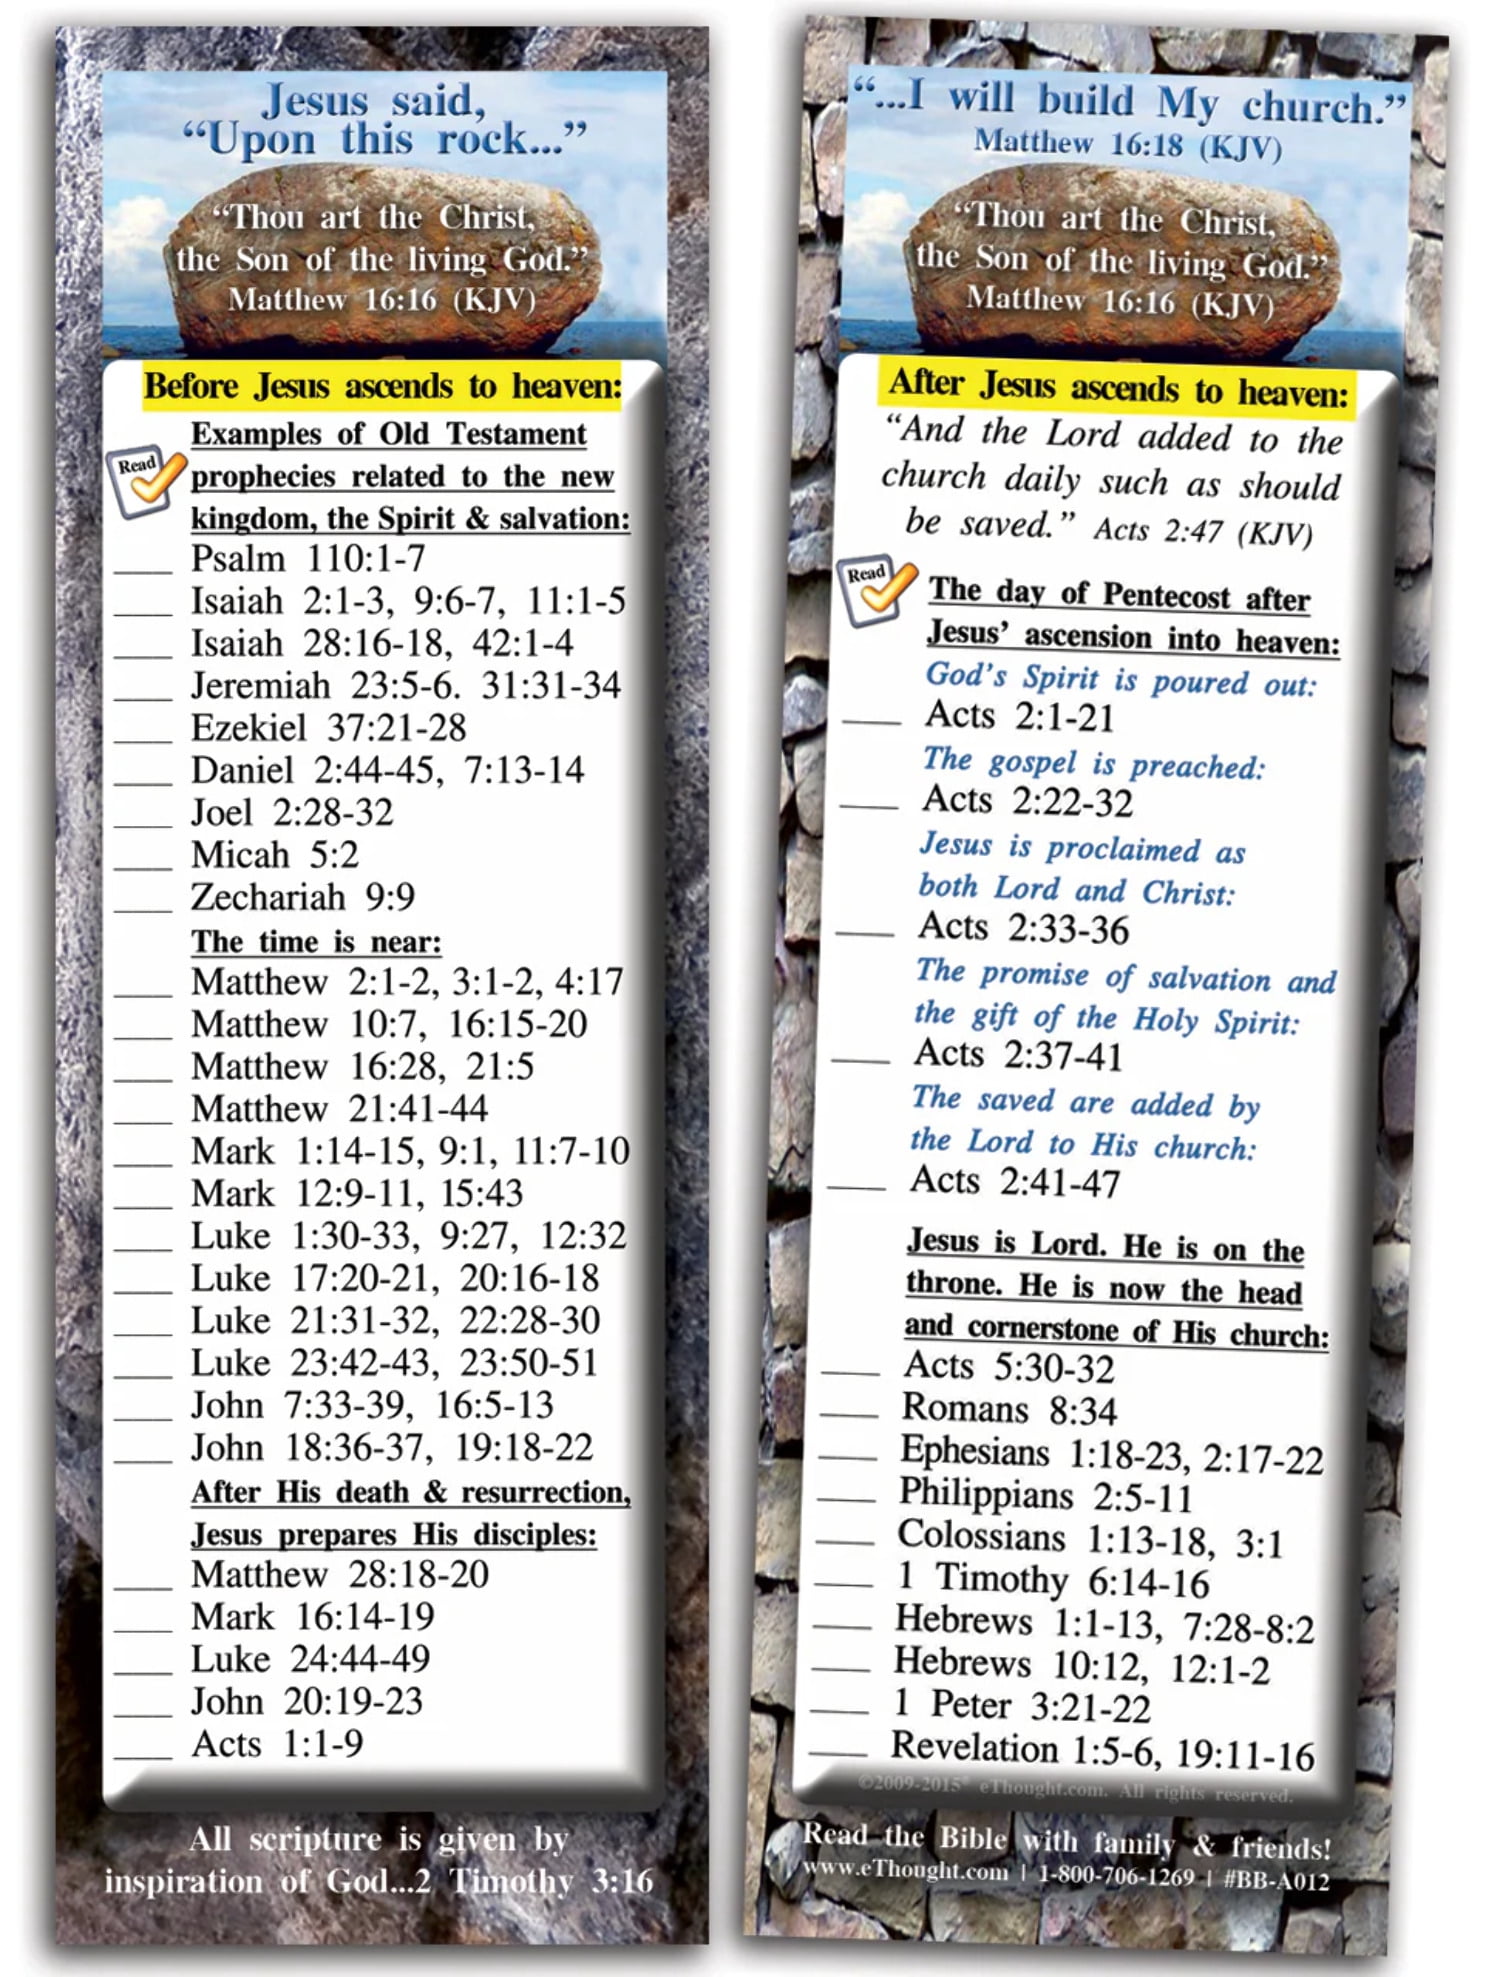 Jesus said,
“Upon this rock...”
“Thou art the Christ,
the Son of the living God.”
Matthew 16:16 (KJV)
Before Jesus ascends to heaven:
Read
Examples of Old Testament
prophecies related to the new
kingdom, the Spirit & salvation:
___ Psalm 110:1-7
___ Isaiah 2:1-3, 9:6-7, 11:1-5
___ Isaiah 28:16-18, 42:1-4
___ Jeremiah 23:5-6. 31:31-34
___ Ezekiel 37:21-28
___ Daniel 2:44-45, 7:13-14
___ Joel 2:28-32
___ Micah 5:2
___ Zechariah 9:9
The time is near:
___ Matthew 2:1-2, 3:1-2, 4:17
___ Matthew 10:7, 16:15-20
___ Matthew 16:28, 21:5
___ Matthew 21:41-44
___ Mark 1:14-15, 9:1, 11:7-10
___ Mark 12:9-11, 15:43
___ Luke 1:30-33, 9:27, 12:32
___ Luke 17:20-21, 20:16-18
___ Luke 21:31-32, 22:28-30
___ Luke 23:42-43, 23:50-51
___ John 7:33-39, 16:5-13
___ John 18:36-37, 19:18-22
After His death & resurrection,
Jesus prepares His disciples:
___ Matthew 28:18-20
___ Mark 16:14-19
___ Luke 24:44-49
___ John 20:19-23
___ Acts 1:1-9
All scripture is given by
inspiration of God...2 Timothy 3:16
“...I will build My church.”
Matthew 16:18 (KJV)
“Thou art the Christ,
the Son of the living God.”
Matthew 16:16 (KJV)
After Jesus ascends to heaven:
“And the Lord added to the
church daily such as should
be saved.” Acts 2:47 (KJV)
Read
The day of Pentecost after
Jesus’ ascension into heaven:
God’s Spirit is poured out:
___ Acts 2:1-21
The gospel is preached:
___ Acts 2:22-32
Jesus is proclaimed as
both Lord and Christ:
___ Acts 2:33-36
The promise of salvation and
the gift of the Holy Spirit:
___ Acts 2:37-41
The saved are added by
the Lord to His church:
___ Acts 2:41-47
Jesus is Lord. He is on the
throne. He is now the head
and cornerstone of His church:
___ Acts 5:30-32
___ Romans 8:34
___ Ephesians 1:18-23, 2:17-22
___ Philippians 2:5-11
___ Colossians 1:13-18, 3:1
___ 1 Timothy 6:14-16
___ Hebrews 1:1-13, 7:28-8:2
___ Hebrews 10:12, 12:1-2
___ 1 Peter 3:21-22
___ Revelation 1:5-6, 19:11-16
©2009-2015® eThought.com. All rights reserved.
Read the Bible with family & friends!
www.eThought.com | 1-800-706-1269 | #BB-A012